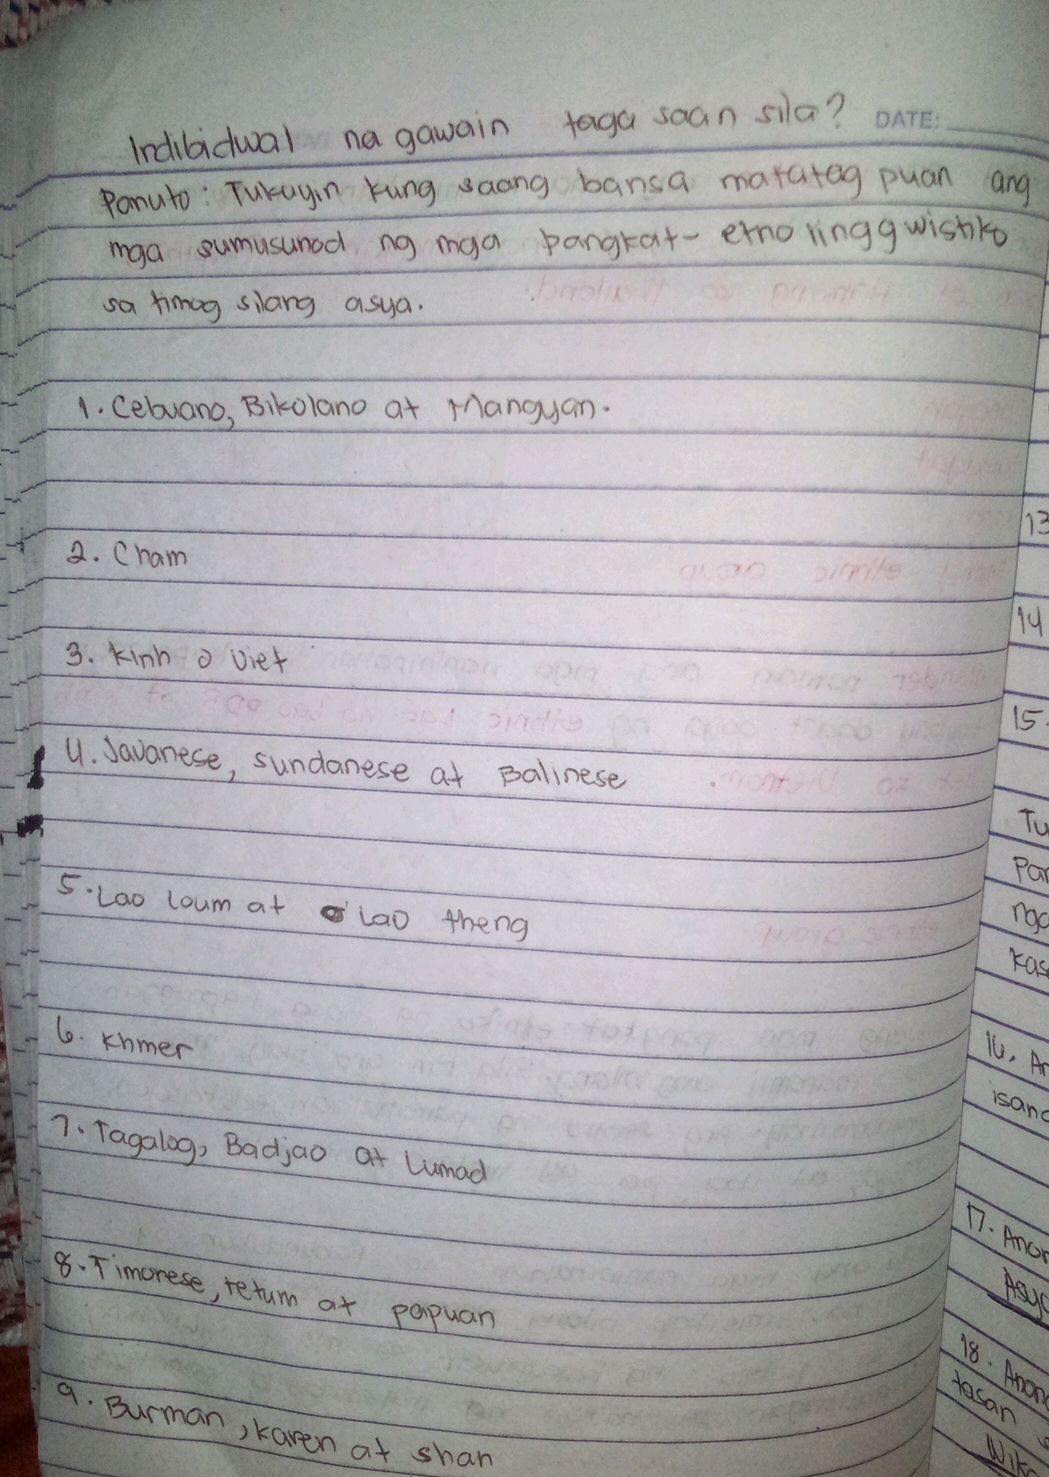 DATE:
Indibidwal na gawain taga saan sila?
Panuto: Tukuyin kung saang bansa matatag puan ang
mga sumusunod ng mga pangkat-etno linggwistiko
sa timog silang asya.
1. Cebuano, Bikolano at Mangyan.
2. Cham
3. Kinh o Viet
4. Javanese, sundanese at Balinese
5. Lao loum at Lao theng
6. Khmer
7. Tagalog, Badjao at Lumad
8. Timorese, tetum at papuan
9. Burman, karen at shan
13
14
15.
16.
isang
17.
18.
tasan